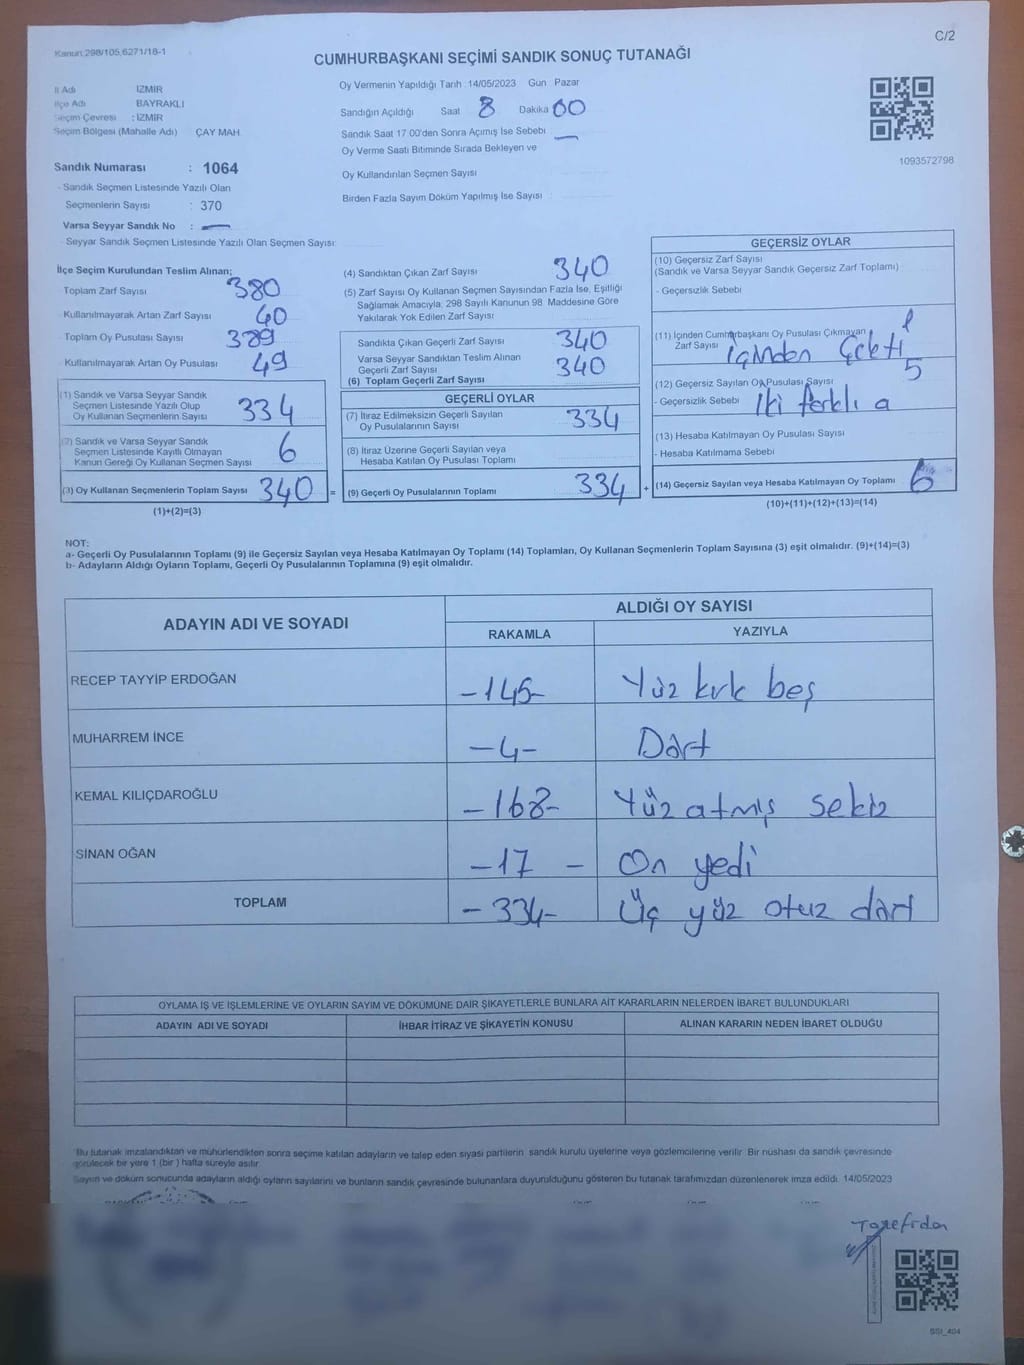 Kanun 298/105,6271/18-1
C/2
CUMHURBAŞKANI SEÇİMİ SANDIK SONUÇ TUTANAĞI
İl Adı İZMİR
İlçe Adı BAYRAKLI
Seçim Çevresi : İZMİR
Seçim Bölgesi (Mahalle Adı) ÇAY MAH.
Sandık Numarası : 1064
- Sandık Seçmen Listesinde Yazılı Olan
Seçmenlerin Sayısı : 370
Varsa Seyyar Sandık No : —
- Seyyar Sandık Seçmen Listesinde Yazılı Olan Seçmen Sayısı:
Oy Vermenin Yapıldığı Tarih : 14/05/2023 Gün Pazar
Sandığın Açıldığı Saat 8 Dakika 00
Sandık Saat 17.00'den Sonra Açımış İse Sebebi —
Oy Verme Saati Bitiminde Sırada Bekleyen ve
Oy Kullandırılan Seçmen Sayısı
Birden Fazla Sayım Döküm Yapılmış İse Sayısı :
1093572798
İlçe Seçim Kurulundan Teslim Alınan;
Toplam Zarf Sayısı 380
Kullanılmayarak Artan Zarf Sayısı 40
Toplam Oy Pusulası Sayısı 389
Kullanılmayarak Artan Oy Pusulası 49
(1) Sandık ve Varsa Seyyar Sandık
Seçmen Listesinde Yazılı Olup
Oy Kullanan Seçmenlerin Sayısı 334
(2) Sandık ve Varsa Seyyar Sandık
Seçmen Listesinde Kayıtlı Olmayan
Kanun Gereği Oy Kullanan Seçmen Sayısı 6
(3) Oy Kullanan Seçmenlerin Toplam Sayısı 340 =
(1)+(2)=(3)
(4) Sandıktan Çıkan Zarf Sayısı 340
(5) Zarf Sayısı Oy Kullanan Seçmen Sayısından Fazla İse, Eşitliği
Sağlamak Amacıyla, 298 Sayılı Kanunun 98. Maddesine Göre
Yakılarak Yok Edilen Zarf Sayısı
Sandıkta Çıkan Geçerli Zarf Sayısı 340
Varsa Seyyar Sandıktan Teslim Alınan
Geçerli Zarf Sayısı 340
(6) Toplam Geçerli Zarf Sayısı
GEÇERLİ OYLAR
(7) İtiraz Edilmeksizin Geçerli Sayılan
Oy Pusulalarının Sayısı 334
(8) İtiraz Üzerine Geçerli Sayılan veya
Hesaba Katılan Oy Pusulası Toplamı
(9) Geçerli Oy Pusulalarının Toplamı 334 +
GEÇERSİZ OYLAR
(10) Geçersiz Zarf Sayısı
(Sandık ve Varsa Seyyar Sandık Geçersiz Zarf Toplamı)
- Geçersizlik Sebebi
(11) İçinden Cumhurbaşkanı Oy Pusulası Çıkmayan 1
Zarf Sayısı içinden
(12) Geçersiz Sayılan Oy Pusulası Sayısı 5
- Geçersizlik Sebebi iki farklı a
(13) Hesaba Katılmayan Oy Pusulası Sayısı
- Hesaba Katılmama Sebebi
(14) Geçersiz Sayılan veya Hesaba Katılmayan Oy Toplamı 6
(10)+(11)+(12)+(13)=(14)
NOT:
a- Geçerli Oy Pusulalarının Toplamı (9) ile Geçersiz Sayılan veya Hesaba Katılmayan Oy Toplamı (14) Toplamları, Oy Kullanan Seçmenlerin Toplam Sayısına (3) eşit olmalıdır. (9)+(14)=(3)
b- Adayların Aldığı Oyların Toplamı, Geçerli Oy Pusulalarının Toplamına (9) eşit olmalıdır.
ADAYIN ADI VE SOYADI ALDIĞI OY SAYISI
RAKAMLA YAZIYLA
RECEP TAYYİP ERDOĞAN -145- Yüz kırk beş
MUHARREM İNCE -4- Dört
KEMAL KILIÇDAROĞLU -168- Yüz atmış sekiz
SİNAN OĞAN -17- On yedi
TOPLAM -334- Üç yüz otuz dört
OYLAMA İŞ VE İŞLEMLERİNE VE OYLARIN SAYIM VE DÖKÜMÜNE DAİR ŞİKAYETLERLE BUNLARA AİT KARARLARIN NELERDEN İBARET BULUNDUKLARI
ADAYIN ADI VE SOYADI İHBAR İTİRAZ VE ŞİKAYETİN KONUSU ALINAN KARARIN NEDEN İBARET OLDUĞU
Bu tutanak imzalandıktan ve mühürlendikten sonra seçime katılan adayların ve talep eden siyasi partilerin sandık kurulu üyelerine veya gözlemcilerine verilir. Bir nüshası da sandık çevresinde
görülecek bir yere 1 (bir) hafta süreyle asılır.
Sayım ve döküm sonucunda adayların aldığı oyların sayılarını ve bunların sandık çevresinde bulunanlara duyurulduğunu gösteren bu tutanak tarafımızdan düzenlenerek imza edildi. 14/05/2023